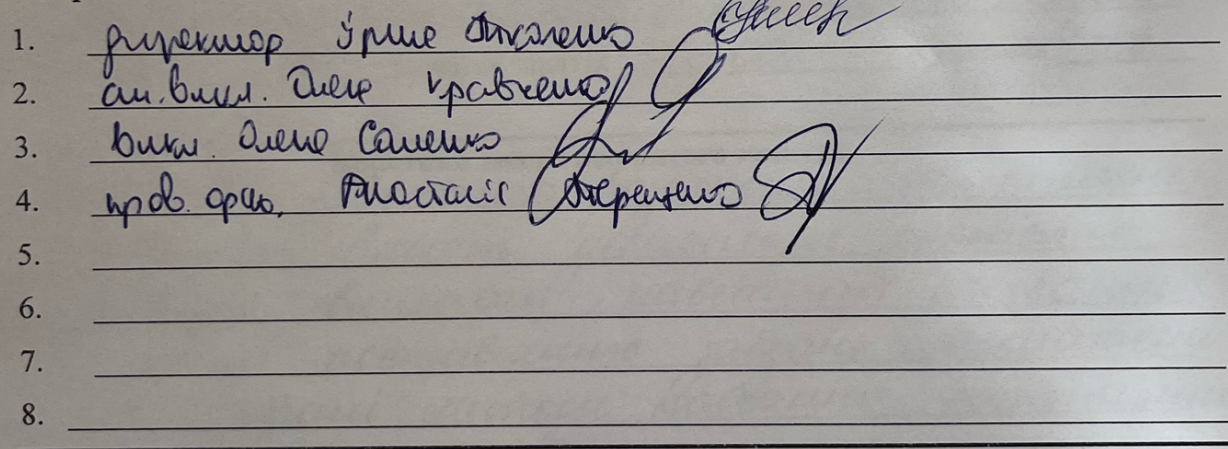 1. директор Ірина
2. ст. викл. Олена Кравченко
3. викл. Олена Саленко
4. пров. фах. Анастасія Терещенко
5.
6.
7.
8.